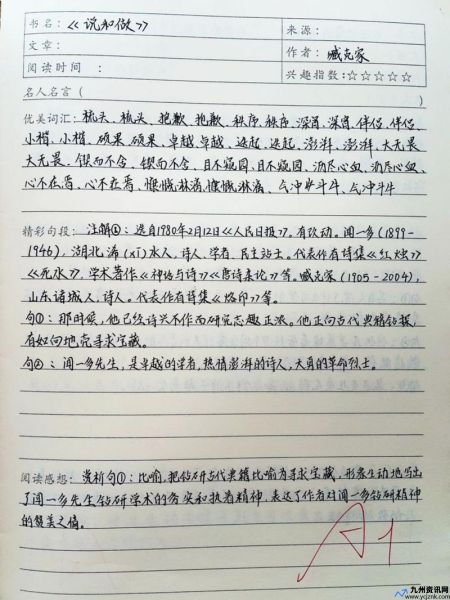 书名：《说和做》
来源：
文章：
作者：臧克家
阅读时间：
兴趣指数：☆☆☆☆☆
名人名言（ ）
优美词汇：梳头、梳头、抱歉、抱歉、秩序、秩序、深宵、深宵、伴侣、伴侣、
小楷、小楷、硕果、硕果、卓越、卓越、迭起、迭起、澎湃、澎湃、大无畏、
大无畏、锲而不舍、锲而不舍、目不窥园、目不窥园、沥尽心血、沥尽心血、
心不在焉、心不在焉、慷慨淋漓、慷慨淋漓、气冲斗牛、气冲斗牛
精彩句段：注解①：选自1980年2月12日《人民日报》。有改动。闻一多（1899-
1946），湖北浠（xī）水人，诗人、学者、民主战士。代表作有诗集《红烛》
《死水》，学术著作《神话与诗》《唐诗杂论》等。臧克家（1905-2004），
山东诸城人，诗人。代表作有诗集《烙印》等。
句①：那时候，他已经诗兴不作而研究志趣正浓。他正向古代典籍钻探，
有如向地壳寻求宝藏。
句②：闻一多先生，是卓越的学者，热情澎湃的诗人，大勇的革命烈士。
阅读感想：赏析句①：比喻，把钻研古代典籍比喻为寻求宝藏，形象生动地写出
了闻一多先生钻研学术的务实和执着精神，表达了作者对闻一多钻研精神
的赞美之情。
A1
九州资讯网
www.ycjznk.com